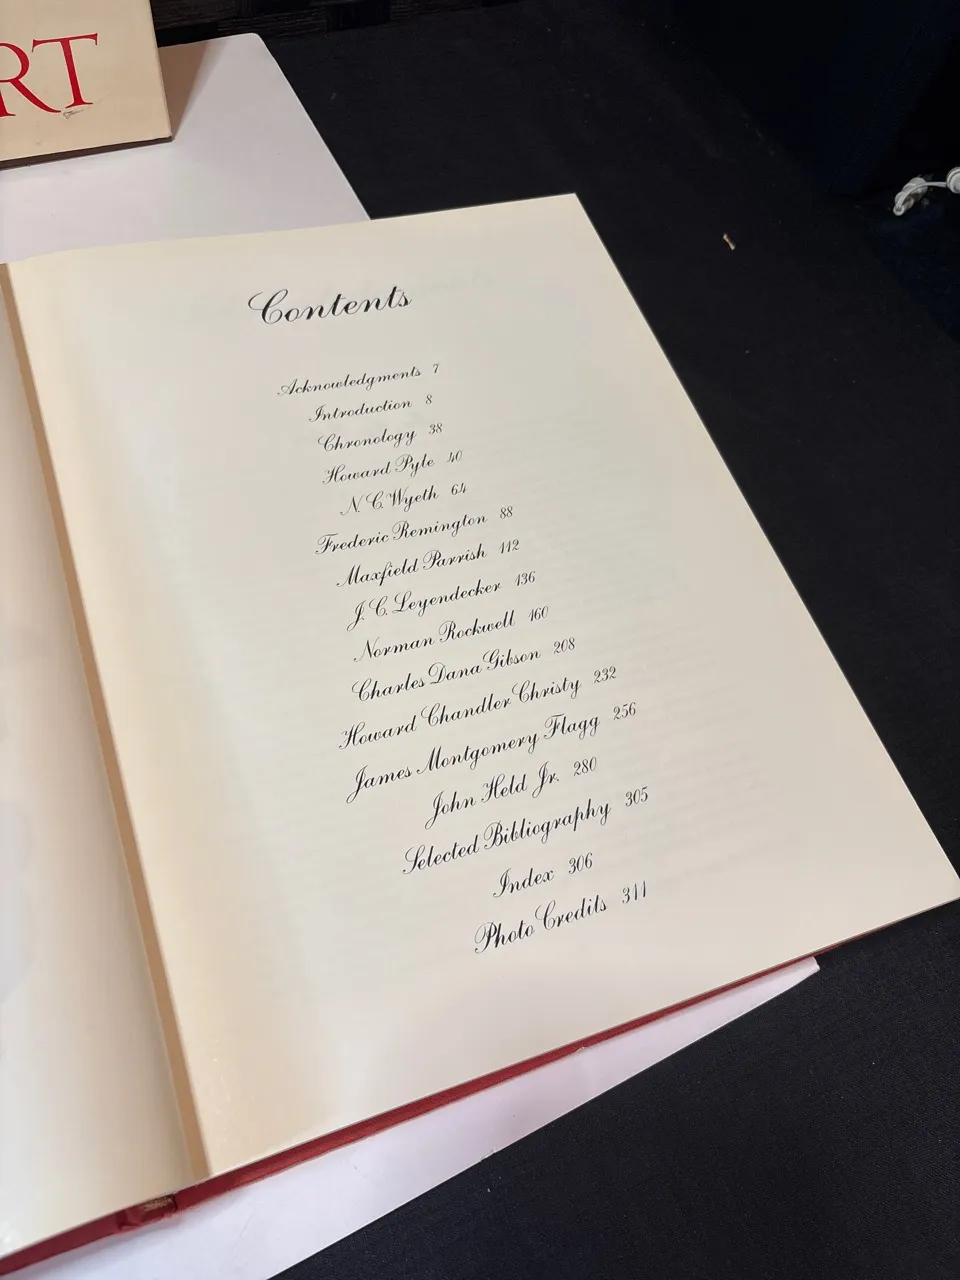 RT
Contents
Acknowledgments 7
Introduction 8
Chronology 38
Howard Pyle 40
N. C. Wyeth 64
Frederic Remington 88
Maxfield Parrish 112
J. C. Leyendecker 136
Norman Rockwell 160
Charles Dana Gibson 208
Howard Chandler Christy 232
James Montgomery Flagg 256
John Held Jr. 280
Selected Bibliography 305
Index 306
Photo Credits 311